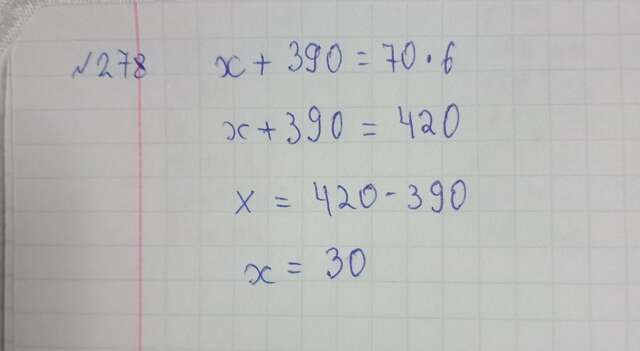 №278 x + 390 = 70 · 6
x + 390 = 420
x = 420 - 390
x = 30